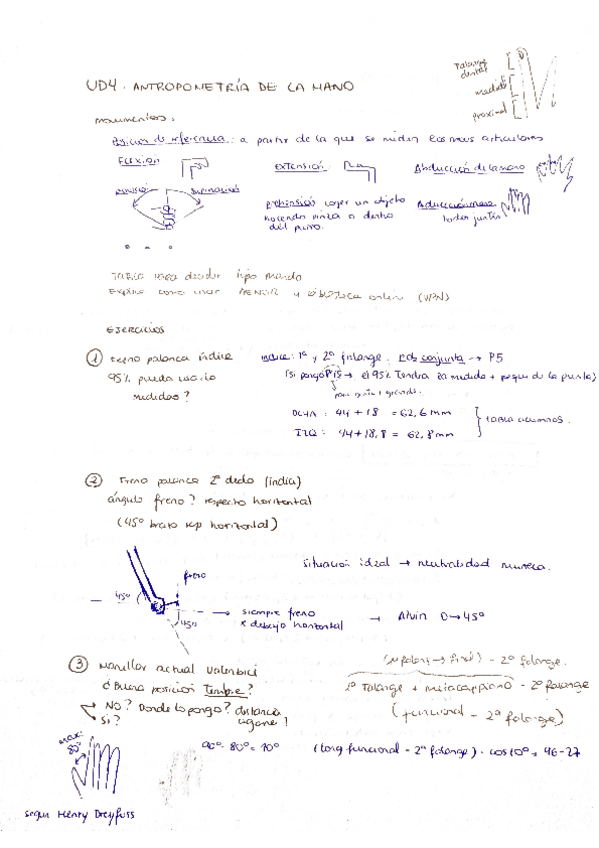 UD4. ANTROPOMETRÍA DE LA MANO
Falange
distal
media
proximal
movimientos:
Posición de referencia: a partir de la que se miden los mov articulares
FLEXIÓN
EXTENSIÓN
Abducción de la mano
pronación
supinación
prehensión coger un objeto
haciendo pinza o dentro
del puño.
Aducción mano
juntar
TABLA para decidir tipo mando
Explica como usar MENDELEY y biblioteca online (VPN)
EJERCICIOS
① freno palanca índice
95% pueda usarlo
medidas?
índice: 1ª y 2ª falange. conjunta → P5
(si pongo P15 → el 95% tendrá la medida + peque de la punta)
DCHA: 44 + 18 = 62,6 mm
IZQ: 44 + 18,8 = 62,8 mm
tabla alumnos.
② Freno palanca 2º dedo (índice)
ángulo freno? respecto horizontal
(45º brazo resp horizontal)
situación ideal → neutralidad muñeca.
freno
45º
45º
→ siempre freno
x debajo horizontal
→ Alvin 0→45º
③ Manillar actual Valenbici
¿Buena posición timbre?
NO? Donde lo pongo? distancia
SI?
- 2ª falange.
1ª Falange + metacarpiano - 2ª falange
(funcional - 2ª falange)
max:
80º
90º - 80º = 10º
(long funcional - 2ª falange) · cos10º = 46-27
según Henry Dreyfuss